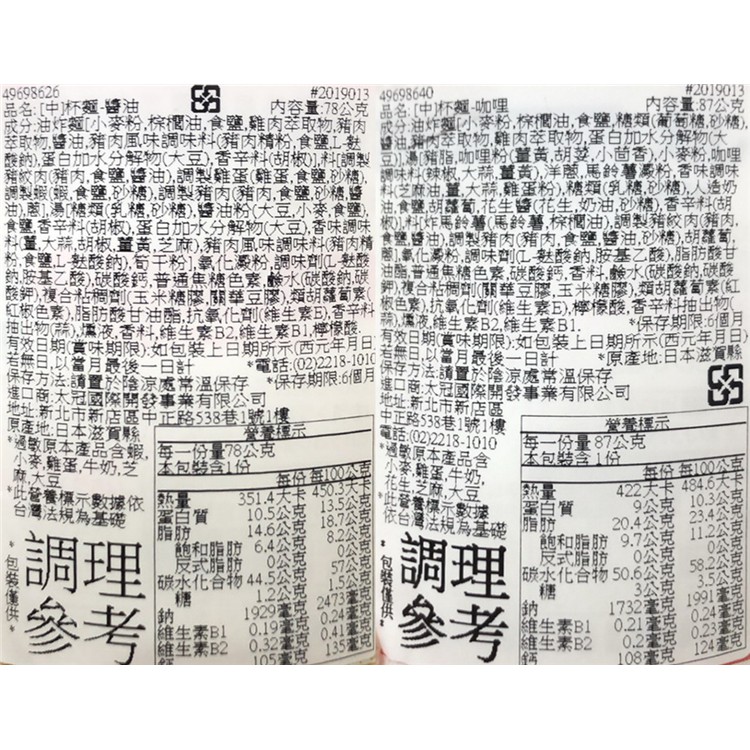 49698626 #2019013
品名:[中]杯麵-醬油 內容量:78公克
成分:油炸麵[小麥粉,棕櫚油,食鹽,雞肉萃取物,豬肉
萃取物,醬油,豬肉風味調味料(豬肉精粉,食鹽,L-麩
酸鈉),蛋白加水分解物(大豆),香辛料(胡椒)],料[調製
豬絞肉(豬肉,食鹽,醬油),調製雞蛋(雞蛋,食鹽,砂糖),
調製蝦(蝦,食鹽,砂糖),調製豬肉(豬肉,食鹽,砂糖,醬
油),蔥],湯[糖類(乳糖,砂糖),醬油粉(大豆,小麥,食鹽),
食鹽,香辛料(胡椒),蛋白加水分解物(大豆),香味調味
料(薑,大蒜,胡椒,薑黃,芝麻),豬肉風味調味料(豬肉精
粉,食鹽,L-麩酸鈉),筍干粉],氧化澱粉,調味劑(L-麩酸
鈉,胺基乙酸),碳酸鈣,普通焦糖色素,鹼水(碳酸鈉,碳
酸鉀),複合粘稠劑(玉米糖膠,關華豆膠),類胡蘿蔔素(
紅椒色素),脂肪酸甘油酯,抗氧化劑(維生素E),香辛料
抽出物(蒜),燻液,香料,維生素B2,維生素B1,檸檬酸.
有效日期(賞味期限):如包裝上日期所示(西元年月日)
若無日,以當月最後一日計 *電話:(02)2218-1010
保存方法:請置於陰涼處常溫保存 *保存期限:6個月
進口商:太冠國際開發事業有限公司
地址:新北市新店區中正路538巷1號1樓
原產地:日本滋賀縣
*過敏原本產品含蝦,
小麥,雞蛋,牛奶,芝
麻,大豆
*此營養標示數據依
台灣法規為基礎
*包裝僅供*
調理
參考
營養標示
每一份量78公克
本包裝含1份
每份 每100公克
熱量 351.4大卡 450.3大卡
蛋白質 10.5公克 13.5公克
脂肪 14.6公克 18.7公克
飽和脂肪 6.4公克 8.2公克
反式脂肪 0公克 0公克
碳水化合物 44.5公克 57公克
糖 1.2公克 1.5公克
鈉 1929毫克 2473毫克
維生素B1 0.19毫克 0.24毫克
維生素B2 0.32毫克 0.41毫克
鈣 105毫克 135毫克
49698640 #2019013
品名:[中]杯麵-咖哩 內容量:87公克
成分:油炸麵[小麥粉,棕櫚油,食鹽,糖類(葡萄糖,砂糖),
豬肉萃取物,醬油,雞肉萃取物,蛋白加水分解物(大
豆)],湯[豬脂,咖哩粉(薑黃,胡荽,小茴香),小麥粉,咖哩
調味料(辣椒,大蒜,薑黃),洋蔥,馬鈴薯澱粉,香味調味
料(芝麻油,薑,大蒜,雞蛋粉),糖類(乳糖,砂糖),人造奶
油,食鹽,胡蘿蔔,花生醬(花生,奶油,砂糖),香辛料(胡
椒)],料[炸馬鈴薯(馬鈴薯,棕櫚油),調製豬絞肉(豬肉,
食鹽,醬油),調製豬肉(豬肉,食鹽,醬油,砂糖),胡蘿蔔,
蔥],氧化澱粉,調味劑(L-麩酸鈉,胺基乙酸),脂肪酸甘
油酯,普通焦糖色素,碳酸鈣,香料,鹼水(碳酸鈉,碳酸
鉀),複合粘稠劑(玉米糖膠,關華豆膠),類胡蘿蔔素(紅
椒色素),抗氧化劑(維生素E),檸檬酸,香辛料抽出物(
蒜),燻液,維生素B2,維生素B1. *保存期限:6個月
有效日期(賞味期限):如包裝上日期所示(西元年月日)
若無日,以當月最後一日計 *原產地:日本滋賀縣
保存方法:請置於陰涼處常溫保存
進口商:太冠國際開發事業有限公司
地址:新北市新店區
中正路538巷1號1樓
電話:(02)2218-1010
*過敏原本產品含
小麥,雞蛋,牛奶,
花生,芝麻,大豆
*此營養標示數據
依台灣法規為基礎
*包裝僅供*
調理
參考
營養標示
每一份量87公克
本包裝含1份
每份 每100公克
熱量 422大卡 484.6大卡
蛋白質 9公克 10.3公克
脂肪 20.4公克 23.4公克
飽和脂肪 9.7公克 11.2公克
反式脂肪 0公克 0公克
碳水化合物 50.6公克 58.2公克
糖 3公克 3.5公克
鈉 1732毫克 1991毫克
維生素B1 0.21毫克 0.24毫克
維生素B2 0.2毫克 0.23毫克
鈣 108毫克 124毫克